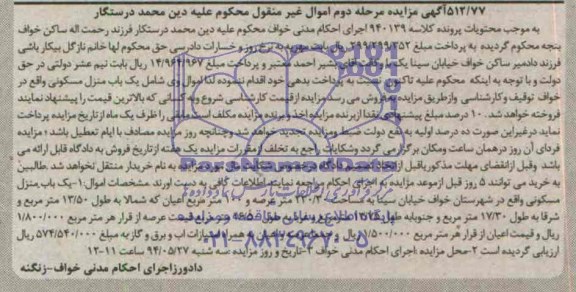 ۵۱۲/۷۷آگهی مزایده مرحله دوم اموال غیر منقول محکوم علیه دین محمد درستگار
به موجب محتویات پرونده کلاسه ۹۴۰۱۳۹ اجرای احکام مدنی خواف محکوم علیه دین محمد درستگار فرزند رحمت اله ساکن خواف
بنجه محکوم گردیده به پرداخت مبلغ ریال بابت مهریه به نرخ روز و خسارات دادرسی حق محکوم لها خانم نازگل بیکار باشی
فرزند دادمیر ساکن خواف خیابان سینا با وکالت آقای بشیر احمد معتبر و پرداخت مبلغ ۱۴/۹۶۴/۹۶۷ ریال بابت نیم عشر دولتی در حق
دولت و با توجه به اینکه محکوم علیه تاکنون نسبت به پرداخت بدهی خود اقدام ننموده لذا اموال وی شامل یک باب منزل مسکونی واقع در
خواف توقیف و کارشناسی و از طریق مزایده به فروش می رسد مزایده از قیمت کارشناسی شروع و به کسانی که بالاترین قیمت را پیشنهاد نمایند
فروخته خواهد شد. ۱۰ درصد مبلغ پیشنهادی نقدا از برنده مزایده اخذ و برنده مزایده مکلف است مابقی را ظرف یک ماه از تاریخ مزایده پرداخت
نماید در غیر این صورت ده درصد اولیه به نفع دولت ضبط و مزایده تجدید خواهد شد و چنانچه روز مزایده مصادف با ایام تعطیل باشد ؛ مزایده
فردای آن روز در همان ساعت و مکان برگزار می گردد و شکایات راجع به تخلف از مقررات مزایده یک هفته از تاریخ فروش به دادگاه قابل ارائه می
باشد وقبل از انقضای مهلت مذکور یا قبل از اتخاذ تصمیم دادگاه مزایده به نام خریدار منتقل نخواهد شد. طالبین
به خرید می توانند ۵ روز قبل از موعد مزایده به اجرای احکام مراجعه نمایند اطلاعات کافی بدست آورند. مشخصات اموال: ۱-یک باب منزل
مسکونی واقع در شهرستان خواف خیابان سینا به مساحت ۲۲۰/۳ متر عرصه و متر مربع اعیان که شمالا به طول ۱۳/۵۰ متر مربع و
شرقا به طول ۱۷/۳۰ متر مربع و جنوبا به طول متر مربع و غربا به طول قیمت عرصه از قرار هر متر مربع ۱/۸۰۰/۰۰۰
ریال و قیمت اعیان از قرار هر متر مربع ۱/۵۰۰/۰۰۰ ریال به همراه امتیازات اب و برق و گاز به مبلغ ۵۷۴/۵۴۰/۰۰۰ ریال
ارزیابی گردیده است ۲-محل مزایده :اجرای احکام مدنی خواف ۳-تاریخ و روز مزایده :سه شنبه ۹۴/۰۵/۲۷ ساعت ۱۱-۱۲
دادورز اجرای احکام مدنی خواف-زنگنه
ParsNamadData
۰۲۱-۸۸۳۴۹۶۷۰-۵